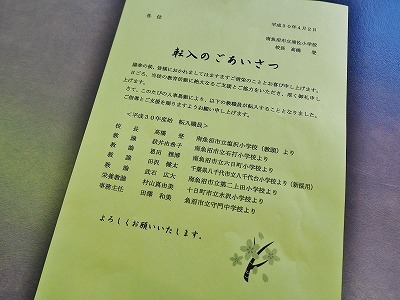 各 位
平成３０年４月２日
校長 高橋 堅
転入のごあいさつ
陽春の候、皆様におかれましてはますますご清栄のこととお喜び申し上げます。
日ごろ、当校の教育活動に絶大なるご支援とご協力をいただき、厚く御礼申し
上げます。
さて、このたびの人事異動により、以下の教職員が転入することとなりました。
ご指導とご支援を賜りますようお願い申し上げます。
＜平成３０年度始 転入職員＞
校 長 高橋 堅 南魚沼市立塩沢小学校（教頭）より
教 諭 南魚沼市立石打小学校より
教 諭 南魚沼市立六日町小学校より
教 諭 田沢 健太 千葉県八千代市立八千代台小学校より（新採用）
教 諭 武石 広大 南魚沼市立第二上田小学校より
栄養教諭 村山真由美 十日町市立水沢小学校より
事務主任 田邊 和美 魚沼市立守門中学校より
よろしくお願いいたします。